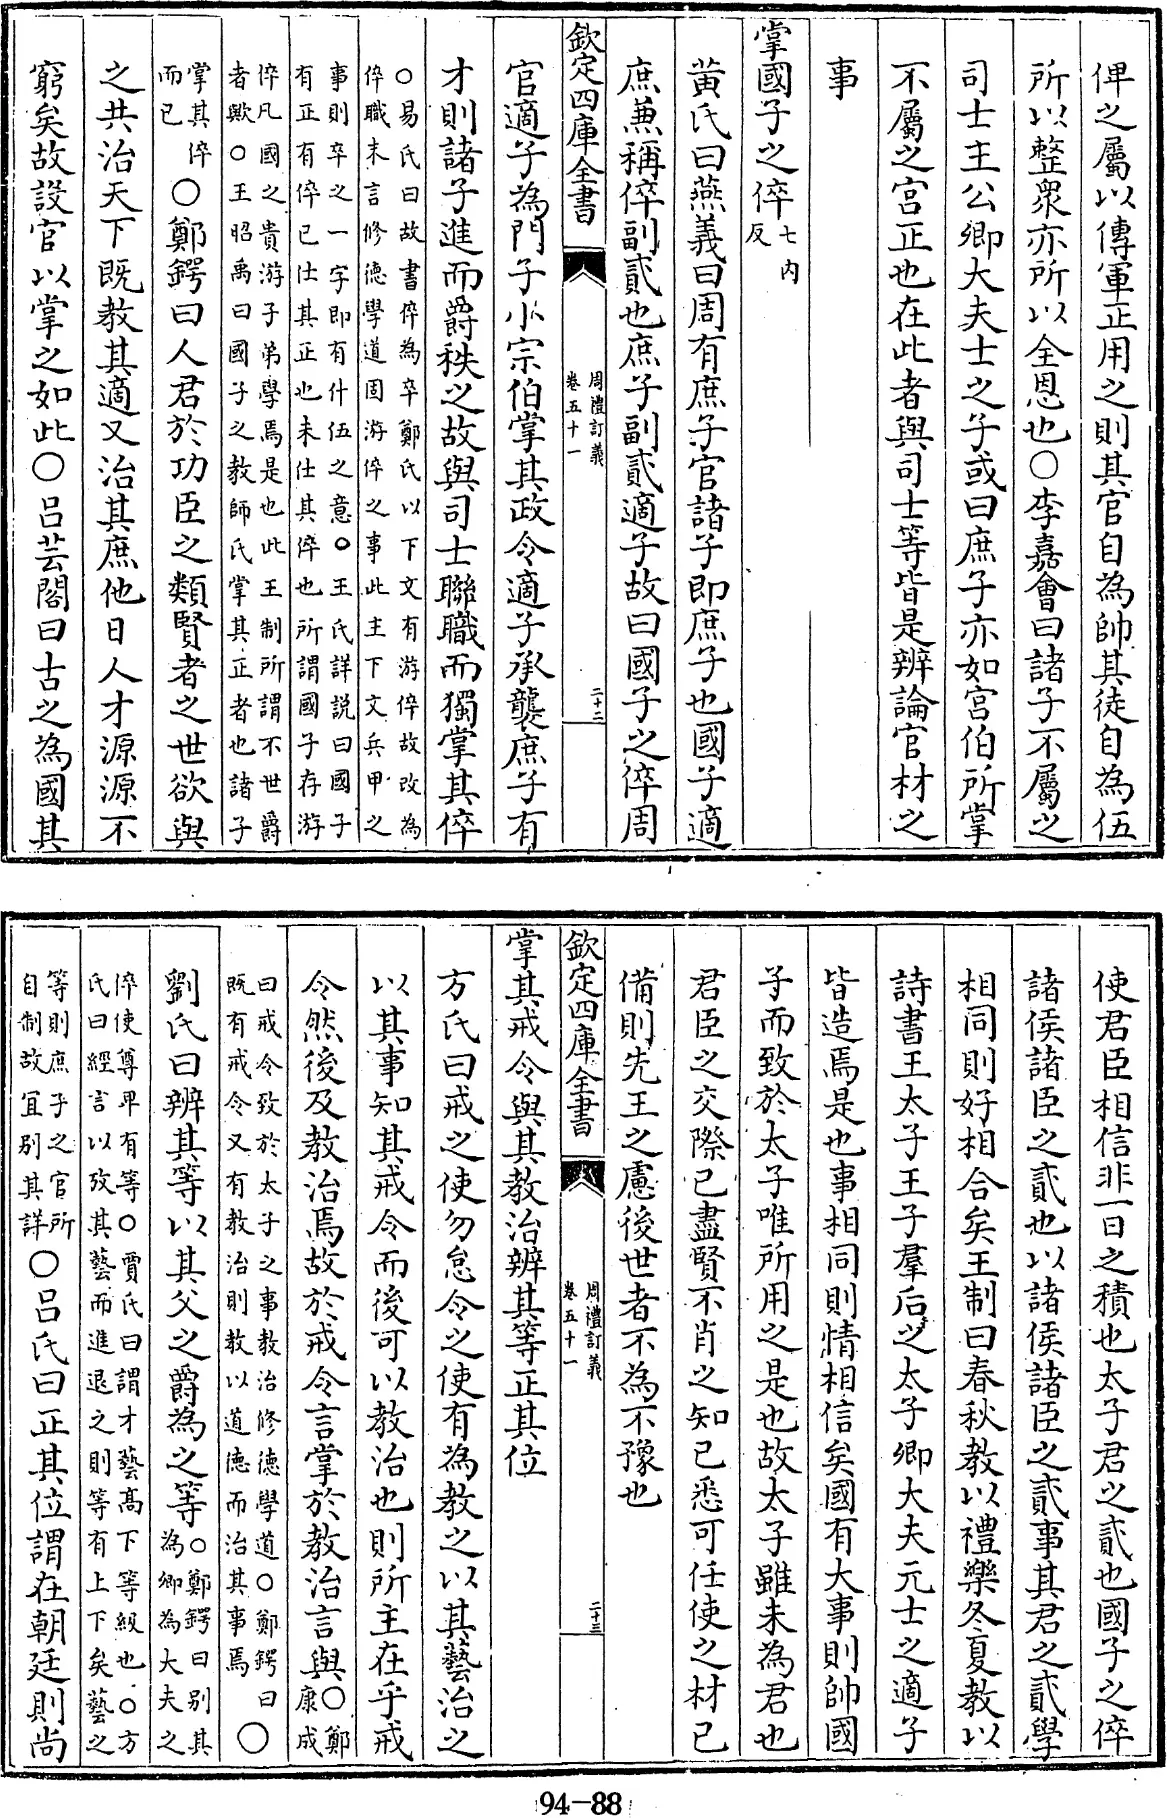 俾之屬以傳軍正用之則其官自為帥其徒自為伍
所以整衆亦所以全恩也○李嘉會曰諸子不屬之
司士主公卿大夫士之子或曰庶子亦如宫伯所掌
不屬之宫正也在此者與司士等皆是辨論官材之
事
掌國子之倅七内反
黄氏曰燕義曰周有庶子官諸子即庶子也國子適
庶兼稱倅副貳也庶子副貳適子故曰國子之倅周
欽定四庫全書
周禮訂義
卷五十一
二十二
官適子為門子小宗伯掌其政令適子承襲庶子有
才則諸子進而爵秩之故與司士聯職而獨掌其倅
○易氏曰故書倅為卒鄭氏以下文有游倅故改為
倅職末言修德學道固游倅之事此主下文兵甲之
事則卒之一字即有什伍之意○王氏詳説曰國子
有正有倅已仕其正也未仕其倅也所謂國子存游
倅凡國之貴游子弟學焉是也此王制所謂不世爵
者歟○王昭禹曰國子之教師氏掌其正者也諸子
掌其倅
而已
○鄭鍔曰人君於功臣之類賢者之世欲與
之共治天下既教其適又治其庶他日人才源源不
窮矣故設官以掌之如此○吕芸閣曰古之為國其
使君臣相信非一日之積也太子君之貳也國子之倅
諸侯諸臣之貳也以諸侯諸臣之貳事其君之貳學
相同則好相合矣王制曰春秋教以禮樂冬夏教以
詩書王太子王子羣后之太子卿大夫元士之適子
皆造焉是也事相同則情相信矣國有大事則帥國
子而致於太子唯所用之是也故太子雖未為君也
君臣之交際已盡賢不肖之知已悉可任使之材已
備則先王之慮後世者不為不豫也
欽定四庫全書
周禮訂義
卷五十一
二十三
掌其戒令與其教治辨其等正其位
方氏曰戒之使勿怠令之使有為教之以其藝治之
以其事知其戒令而後可以教治也則所主在乎戒
令然後及教治焉故於戒令言掌於教治言與○鄭
康成
曰戒令致於太子之事教治修德學道○鄭鍔曰
既有戒令又有教治則教以道德而治其事焉
○
劉氏曰辨其等以其父之爵為之等
○鄭鍔曰别其
為卿為大夫之
倅使尊卑有等○賈氏曰謂才藝高下等級也○方
氏曰經言以攷其藝而進退之則等有上下矣藝之
等則庶子之官所
自制故宜别其詳
○吕氏曰正其位謂在朝廷則尚
94-88